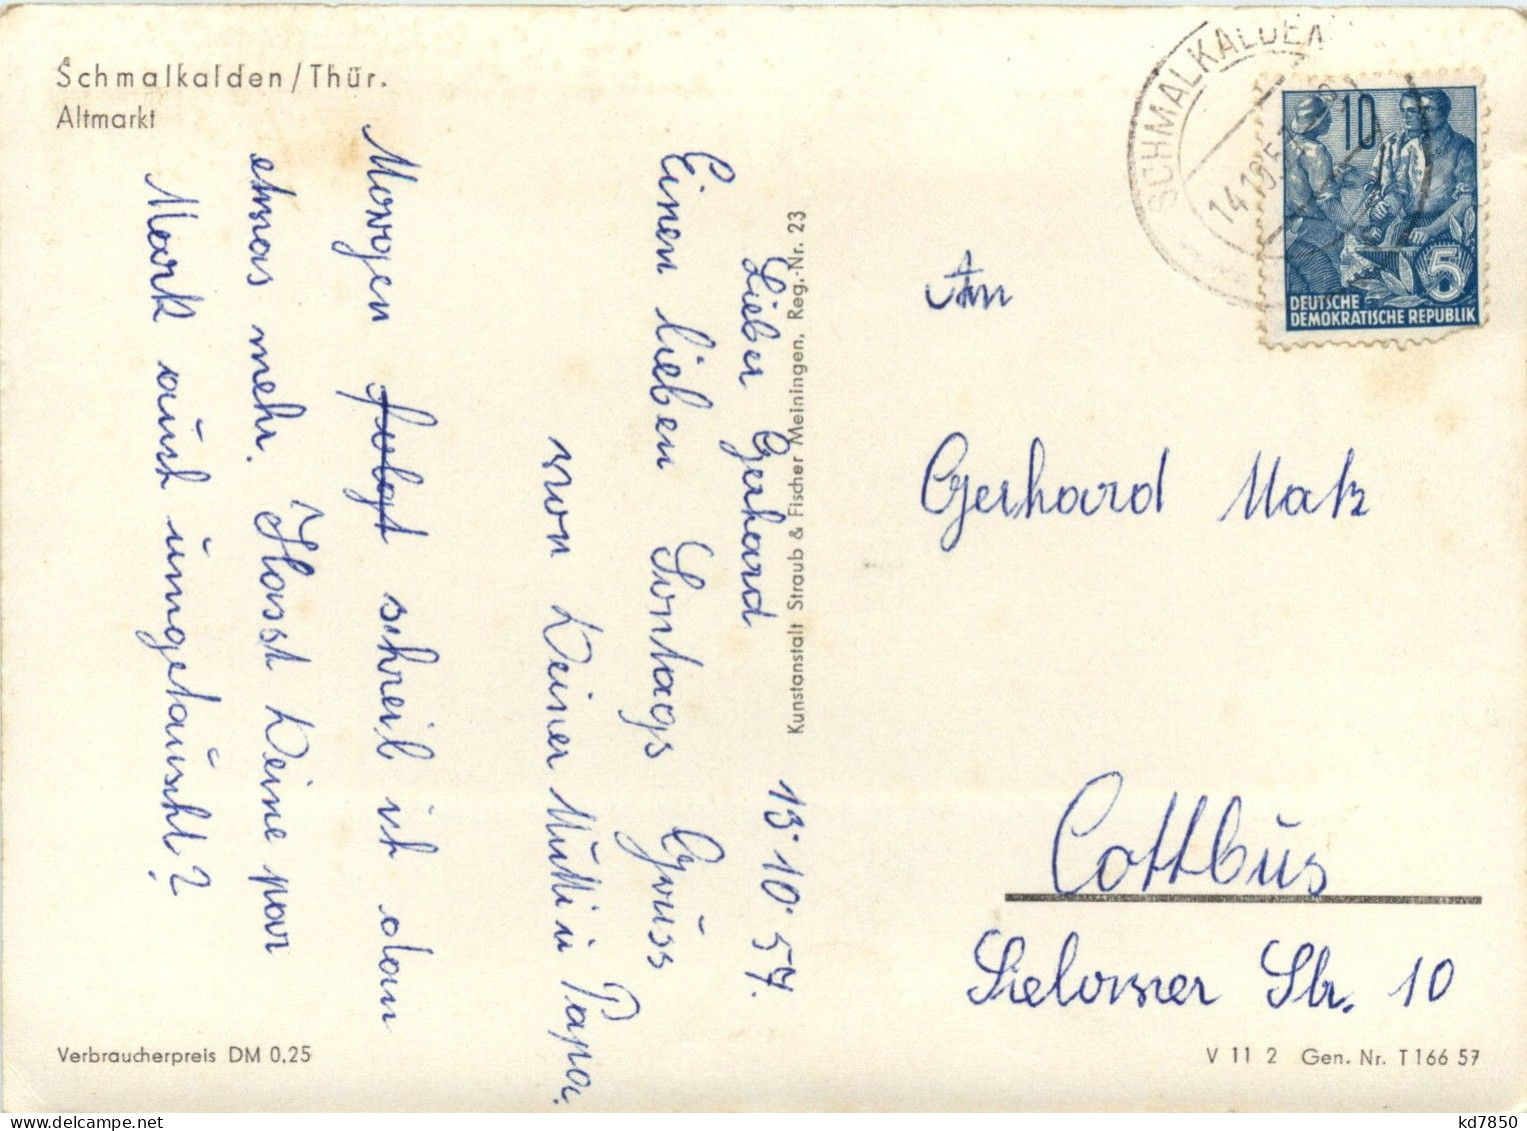 Schmalkalden/Thür.
Altmarkt
Lieber Gerhard 13.10.57.
Einen lieben Sontags Grüss
von Deiner Mutti ü Papa.
Morgen folgt schreib ich dan
etwas mehr. Hasst Deine par
Mark auch ümgetäuscht?
Verbraucherpreis DM 0,25
Kunstanstalt Straub & Fischer Meiningen, Reg.-Nr. 23
SCHMALKALDEN
10
5
DEUTSCHE
DEMOKRATISCHE REPUBLIK
An
Gerhard Matz
Cottbüs
Sielower Str. 10
V 11 2 Gen. Nr. T 166 57
kd7850